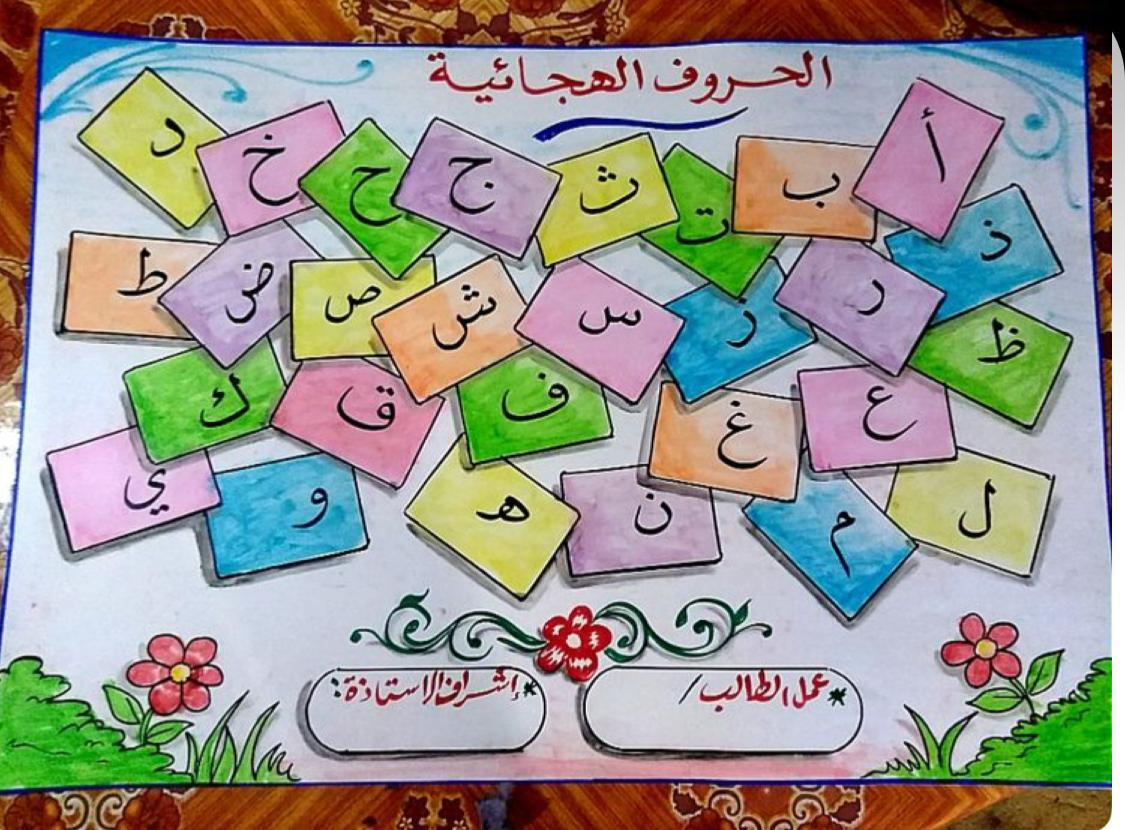 الحروف الهجائية
أ ب ت ث ج ح خ د
ذ ر ز س ش ص ض ط
ظ ع غ ف ق ك
ل م ن ه و ي
* عمل الطالب/
* إشراف الاستاذة: